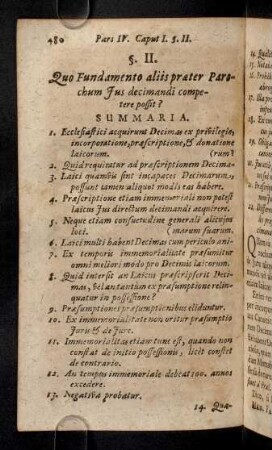 480 Pars IV. Caput I. §. II.
§. II.
Quo Fundamento aliis præter Paro-
chum Jus decimandi compe-
tere possit?
SUMMARIA.
1. Ecclesiastici acquirunt Decimas ex privilegio,
incorporatione, præscriptione, & donatione
laicorum. (rum?
2. Quid requiratur ad præscriptionem Decima-
3. Laici quamvis sint incapaces Decimarum,
possunt tamen aliquot modis eas habere.
4. Præscriptione etiam immemoriali non potest
laicus Jus directum decimandi acquirere.
5. Neque etiam consuetudine generali alicujus
loci. (marum suarum.
6. Laici multi habent Decimas cum periculo ani-
7. Ex temporis immemorialitate præsumitur
omni meliori modo pro Decimis laicorum.
8. Quid intersit an Laicus præscripserit Deci-
mas, vel an tantum ex præsumptione relin-
quatur in possessione?
9. Præsumptiones præsumptionibus eliduntur.
10. Ex immemorialitate non oritur præsumptio
Juris & de Jure.
11. Immemorialitas etiam tunc est, quando non
constat de initio possessionis, licet constet
de contrario.
12. An tempus immemoriale debeat 100. annos
excedere.
13. Negativa probatur.
14. Quæ-